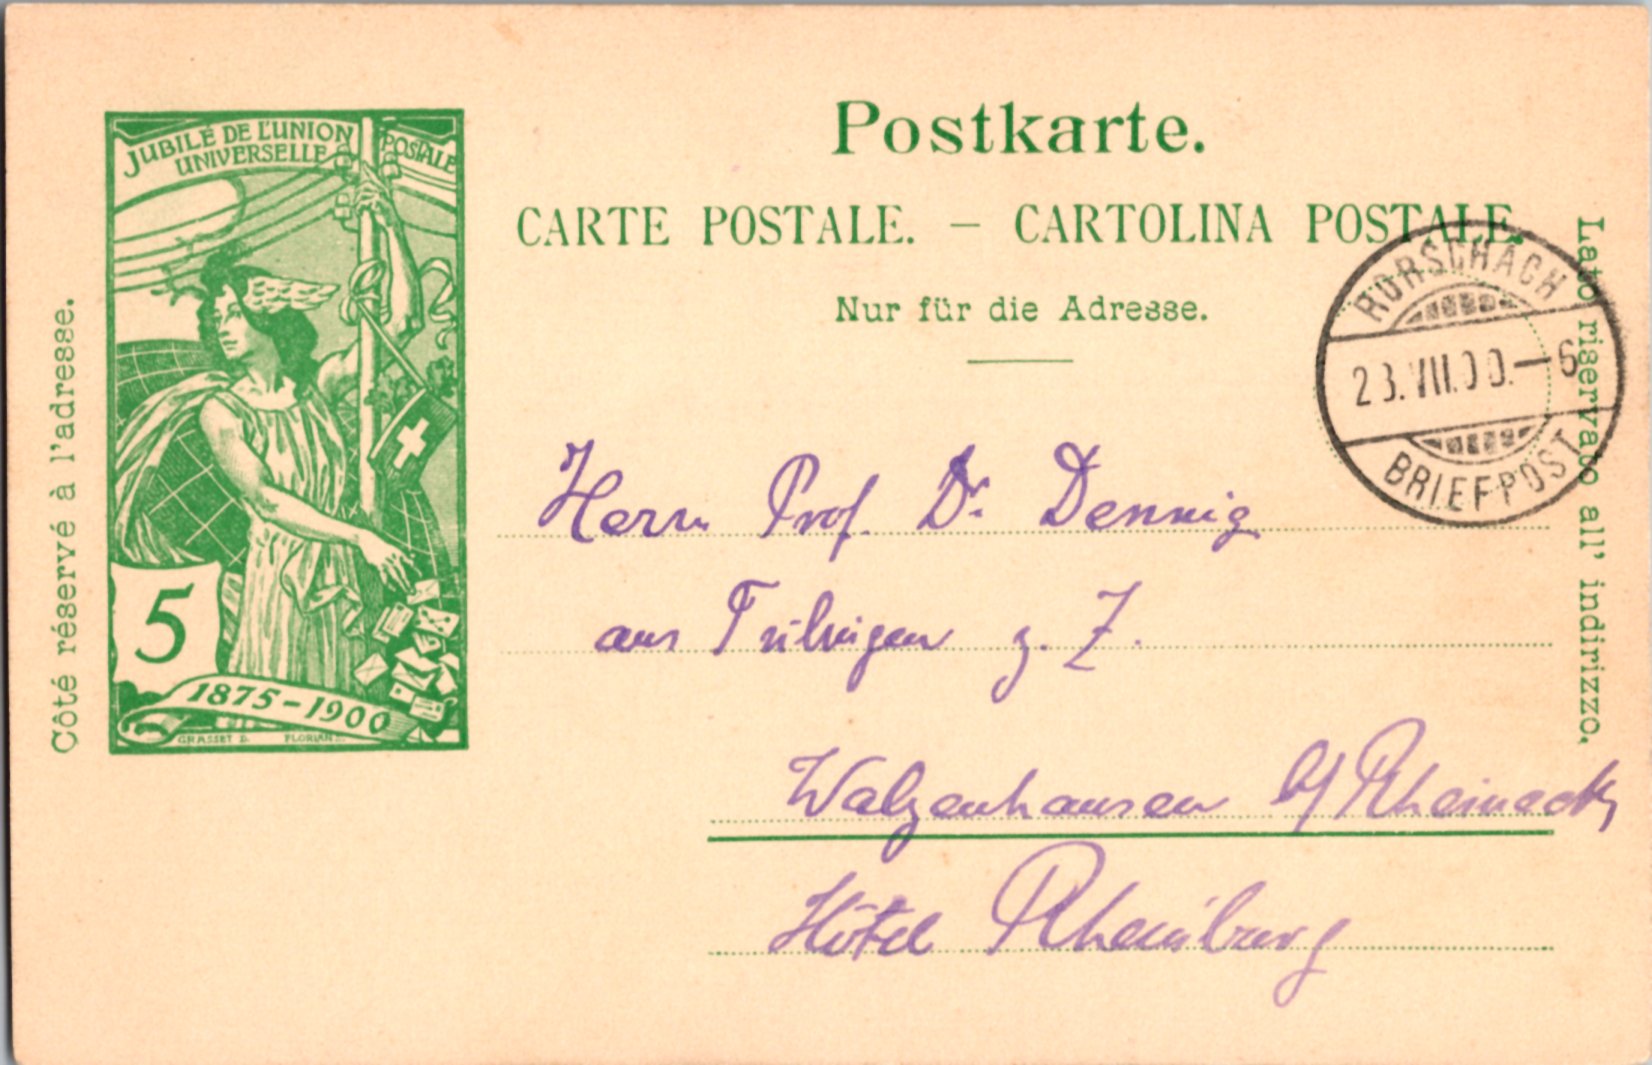 JUBILÉ DE L'UNION POSTALE
UNIVERSELLE
5
1875-1900
GRASSET D. FLORIAN
Côté réservé à l'adresse.
Postkarte.
CARTE POSTALE. — CARTOLINA POSTALE.
Nur für die Adresse.
Lato riservato all' indirizzo.
RORSCHACH
23.VII.00.—6
BRIEFPOST
Herrn Prof. Dr. Dennig
aus Tübingen z. Z.
Walzenhausen b/Rheineck,
Hôtel Rheinburg